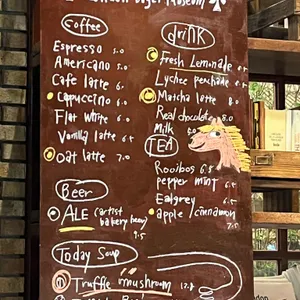 Coffee
Espresso 5.0
Americano 5.0
Cafe latte 6.
Cappuccino 6.0
Flat white 6.0
Vanilla latte 6.5
Oat latte 7.0
Beer
ALE (artist
bakery beer)
9.5
Today Soup
Truffle mushroom 12.8
drink
Fresh Lemonade
Lychee
Matcha latte 8.0
Real chocolate 8.0
Milk
TEA
Rooibos 6.5
pepper mint 6.5
Ealgrey 6.5
apple/cinnamon
7.0